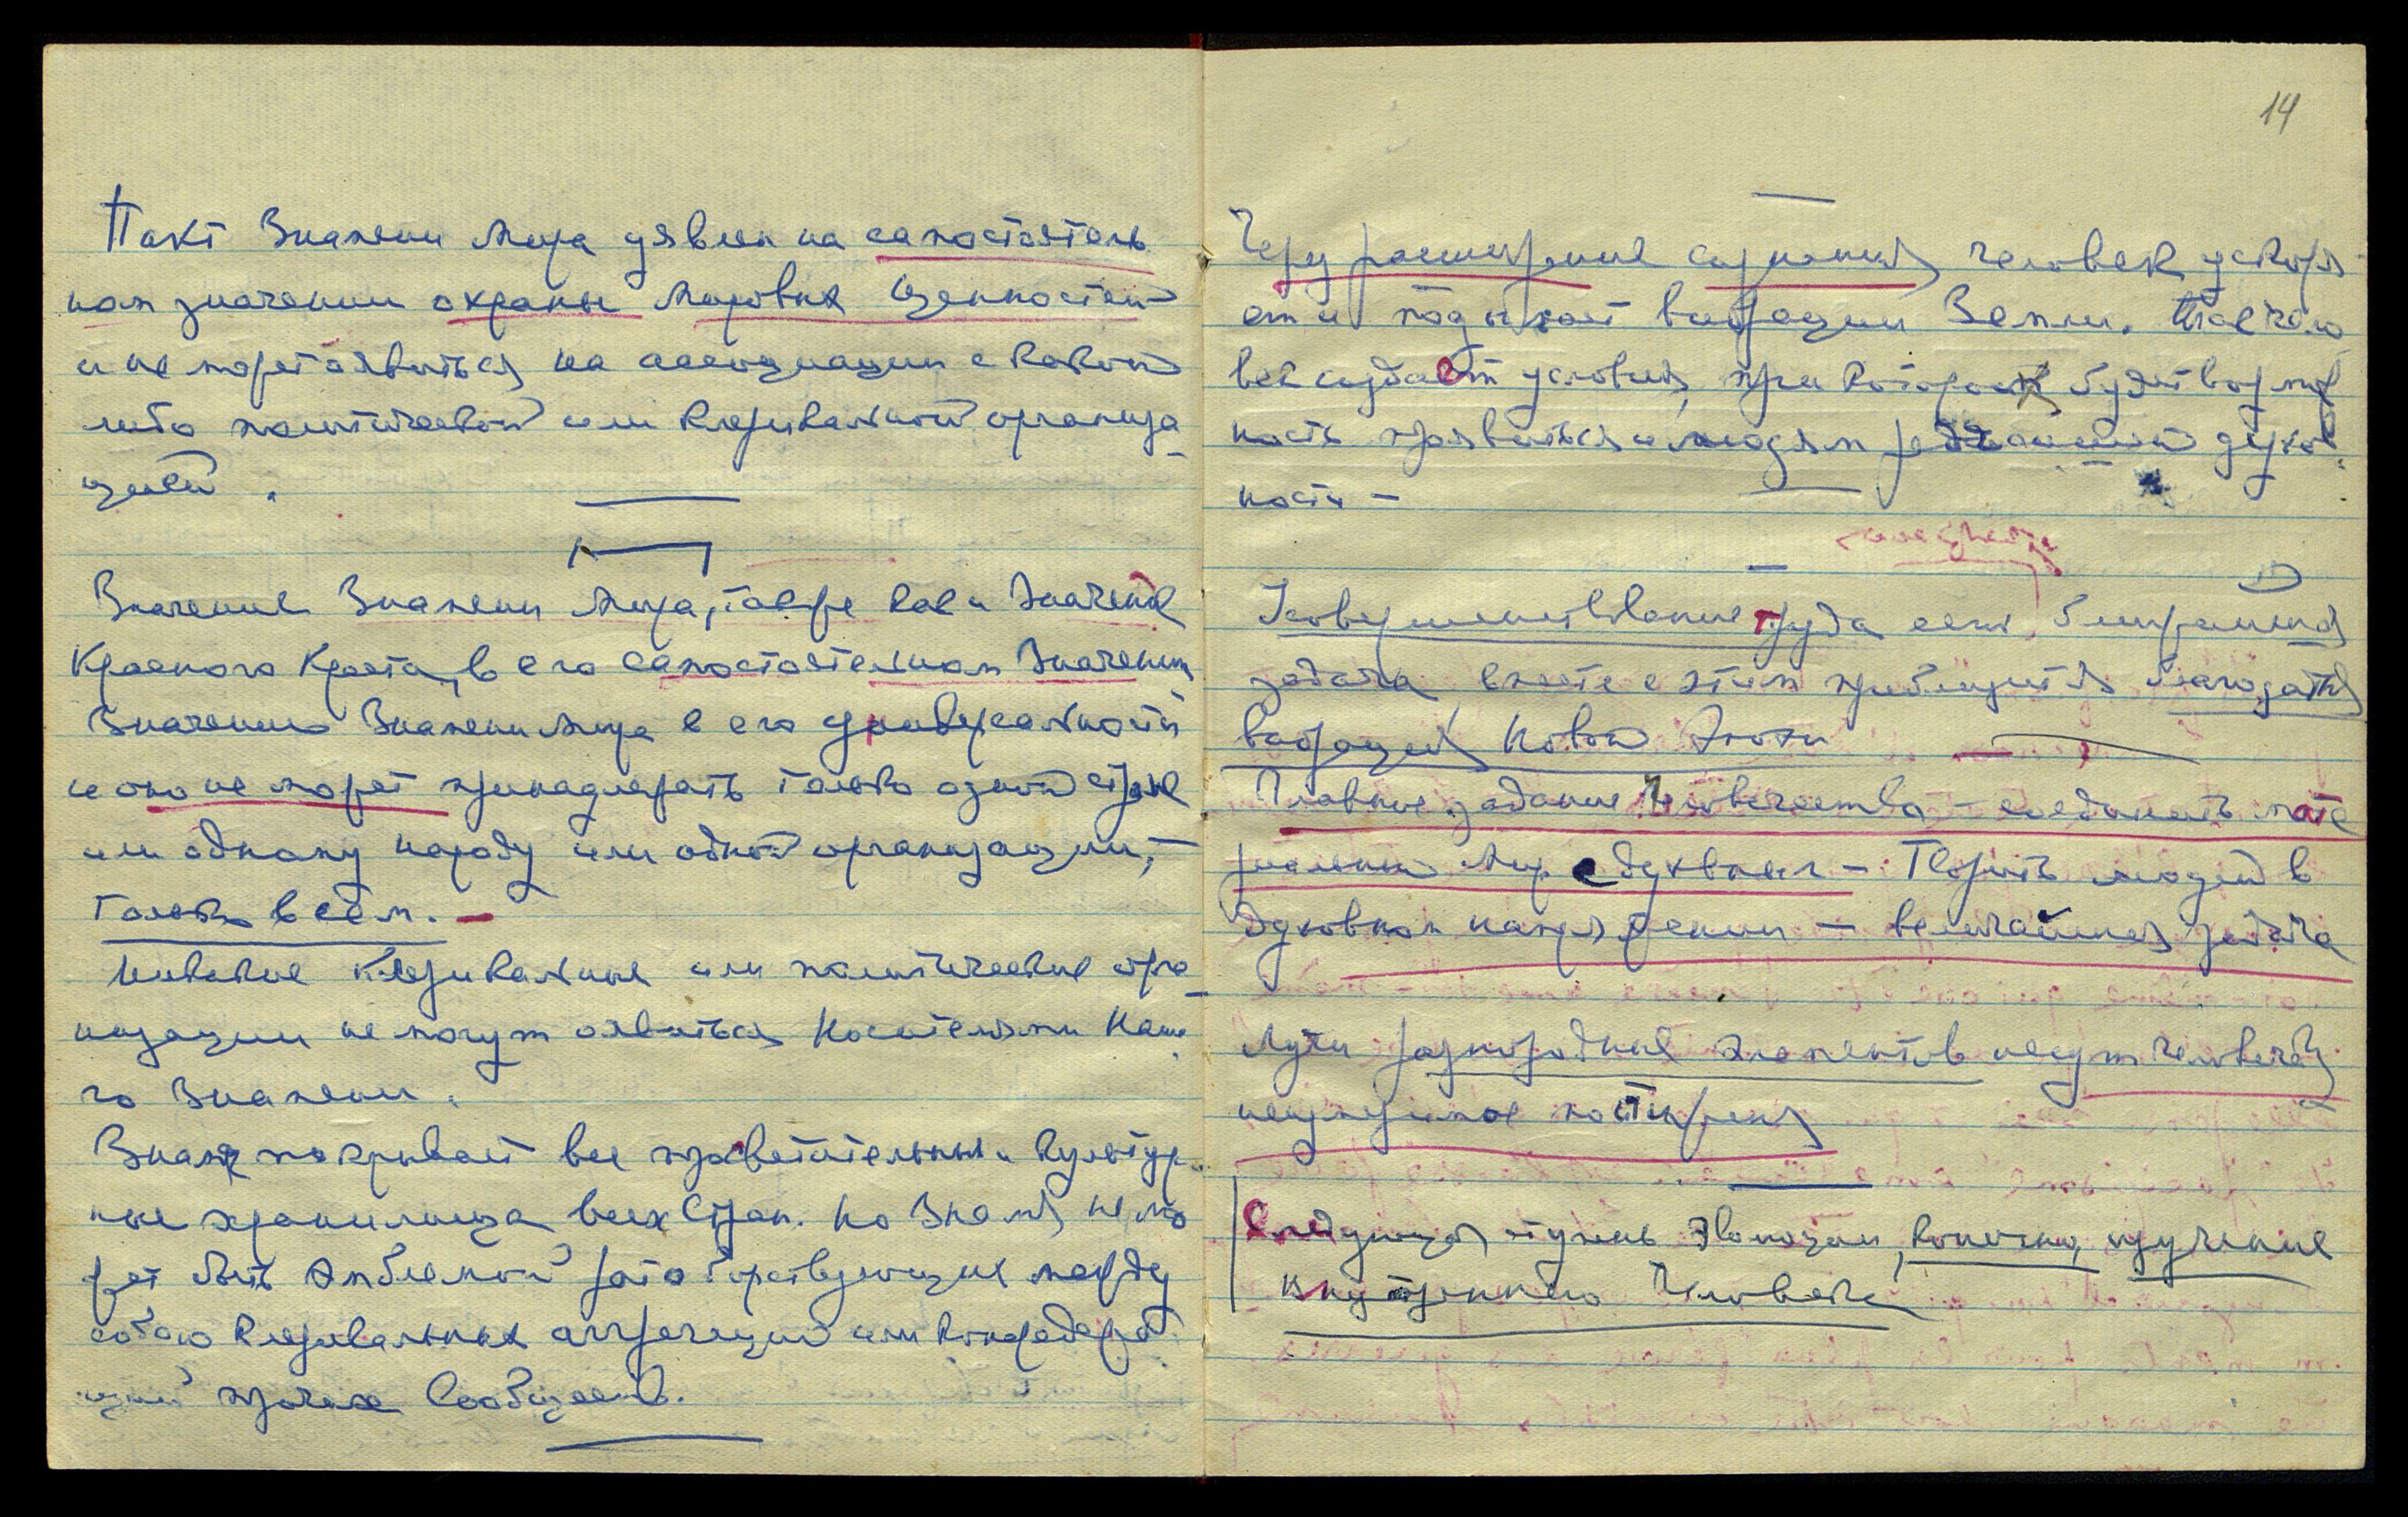 Пакт Знамени Мира уявлен на самостоятель
ном значении охраны Мировых Ценностей
и не может явиться на ассоциации с какой
либо политической или клерикальной организа
цией.
Значение Знамени Мира, также как и Значение
Красного Креста, в его самостоятельном Значении
Значение Знамени Мира в его универсальности
и оно не может принадлежать только одной стране
или одному народу или одной организации, —
только всем. —
Никакие клерикальные или политические орга
низации не могут явиться Носителями Наше
го Знамени.
Знамя покрывает все просветительные и культур
ные хранилища всех Стран. Но Знамя не мо
жет быть Эмблемой ратоборствующих между
собою клерикальных аггрегаций или конфедера
ций прочих Сообществ.
14
Через расширение сознания человек ускоря
ет и подымает вибрации Земли.
век создает условия, при которых будет возмож
ность проявиться и людям духов
ности —
Усовершенствование труда есть ближайшая
задача вместе с этим приблизятся благодатные
вибрации Новой Эпохи
Главное задание Человечества — соединить мате
риальный Мир с духовным — Творить людей в
духовном напряжении — величайшая задача
Лучи разнородных элементов несут человеку
неизмеримое
Следующая ступень Эволюции, конечно, изучение
внутреннего Человека